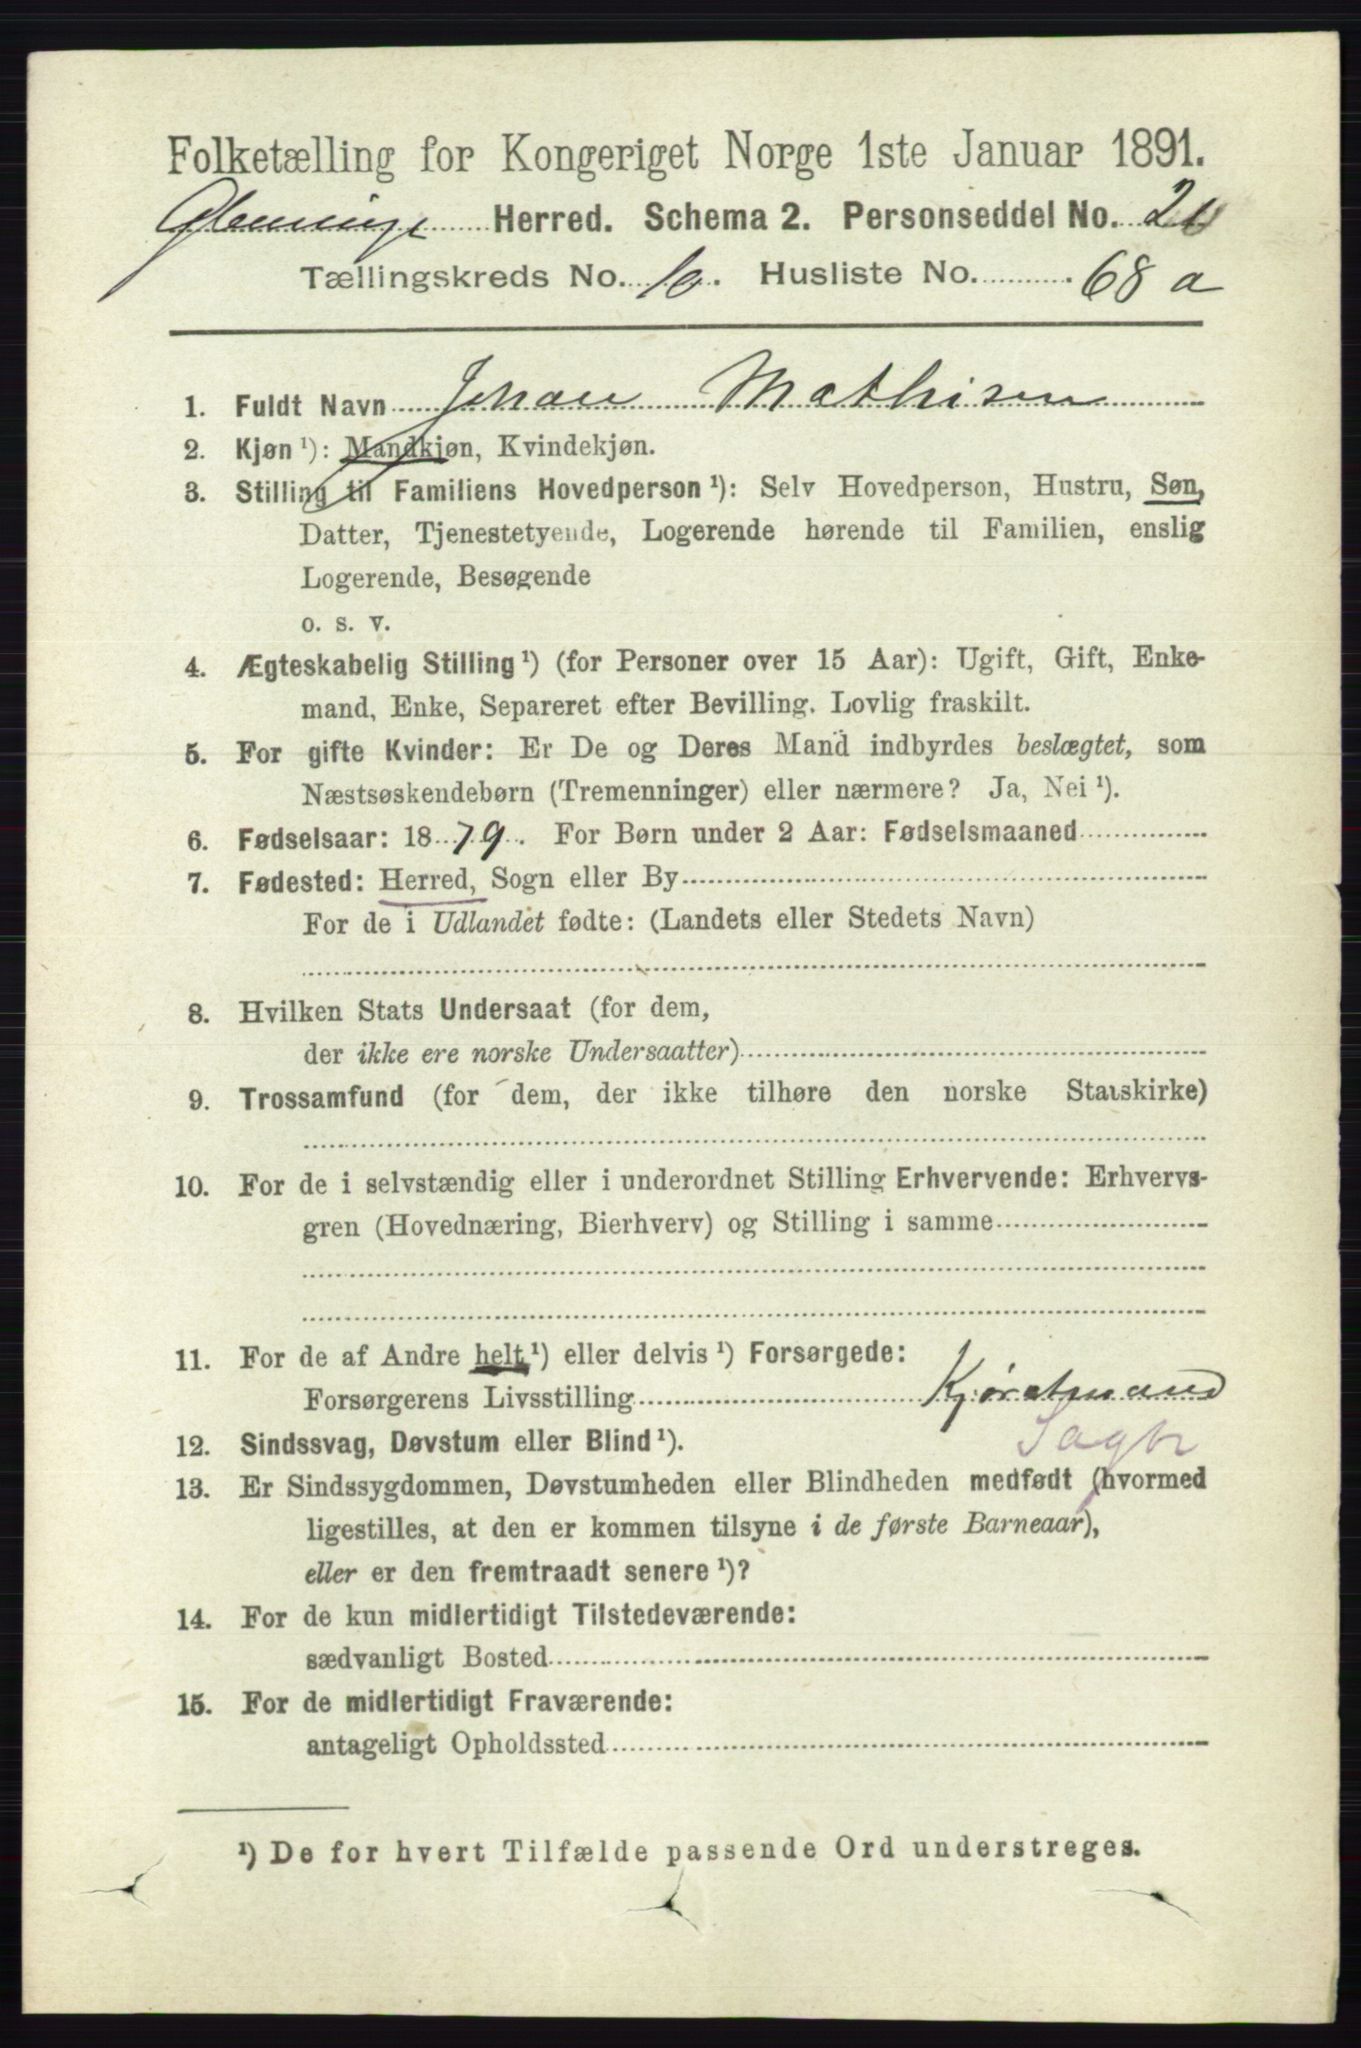 Folketælling for Kongeriget Norge 1ste Januar 1891.
Glemminge Herred. Schema 2. Personseddel No. 21
Tællingskreds No. 10. Husliste No. 68 a
1. Fuldt Navn Johan Mathisen
2. Kjøn ¹): Mandkjøn, Kvindekjøn.
3. Stilling til Familiens Hovedperson ¹): Selv Hovedperson, Hustru, Søn,
Datter, Tjenestetyende, Logerende hørende til Familien, enslig
Logerende, Besøgende
o. s. v.
4. Ægteskabelig Stilling ¹) (for Personer over 15 Aar): Ugift, Gift, Enke-
mand, Enke, Separeret efter Bevilling. Lovlig fraskilt.
5. For gifte Kvinder: Er De og Deres Mand indbyrdes beslægtet, som
Næstsøskendebørn (Tremenninger) eller nærmere? Ja, Nei ¹).
6. Fødselsaar: 1879. For Børn under 2 Aar: Fødselsmaaned
7. Fødested: Herred, Sogn eller By
For de i Udlandet fødte: (Landets eller Stedets Navn)
8. Hvilken Stats Undersaat (for dem,
der ikke ere norske Undersaatter)
9. Trossamfund (for dem, der ikke tilhøre den norske Statskirke)
10. For de i selvstændig eller i underordnet Stilling Erhvervende: Erhvervs-
gren (Hovednæring, Bierhverv) og Stilling i samme
11. For de af Andre helt ¹) eller delvis ¹) Forsørgede:
Forsørgerens Livsstilling Kjøratmand
Sagbr
12. Sindssvag, Døvstum eller Blind ¹).
13. Er Sindssygdommen, Døvstumheden eller Blindheden medfødt (hvormed
ligestilles, at den er kommen tilsyne i de første Barneaar),
eller er den fremtraadt senere ¹)?
14. For de kun midlertidigt Tilstedeværende:
sædvanligt Bosted
15. For de midlertidigt Fraværende:
antageligt Opholdssted
¹) De for hvert Tilfælde passende Ord understreges.